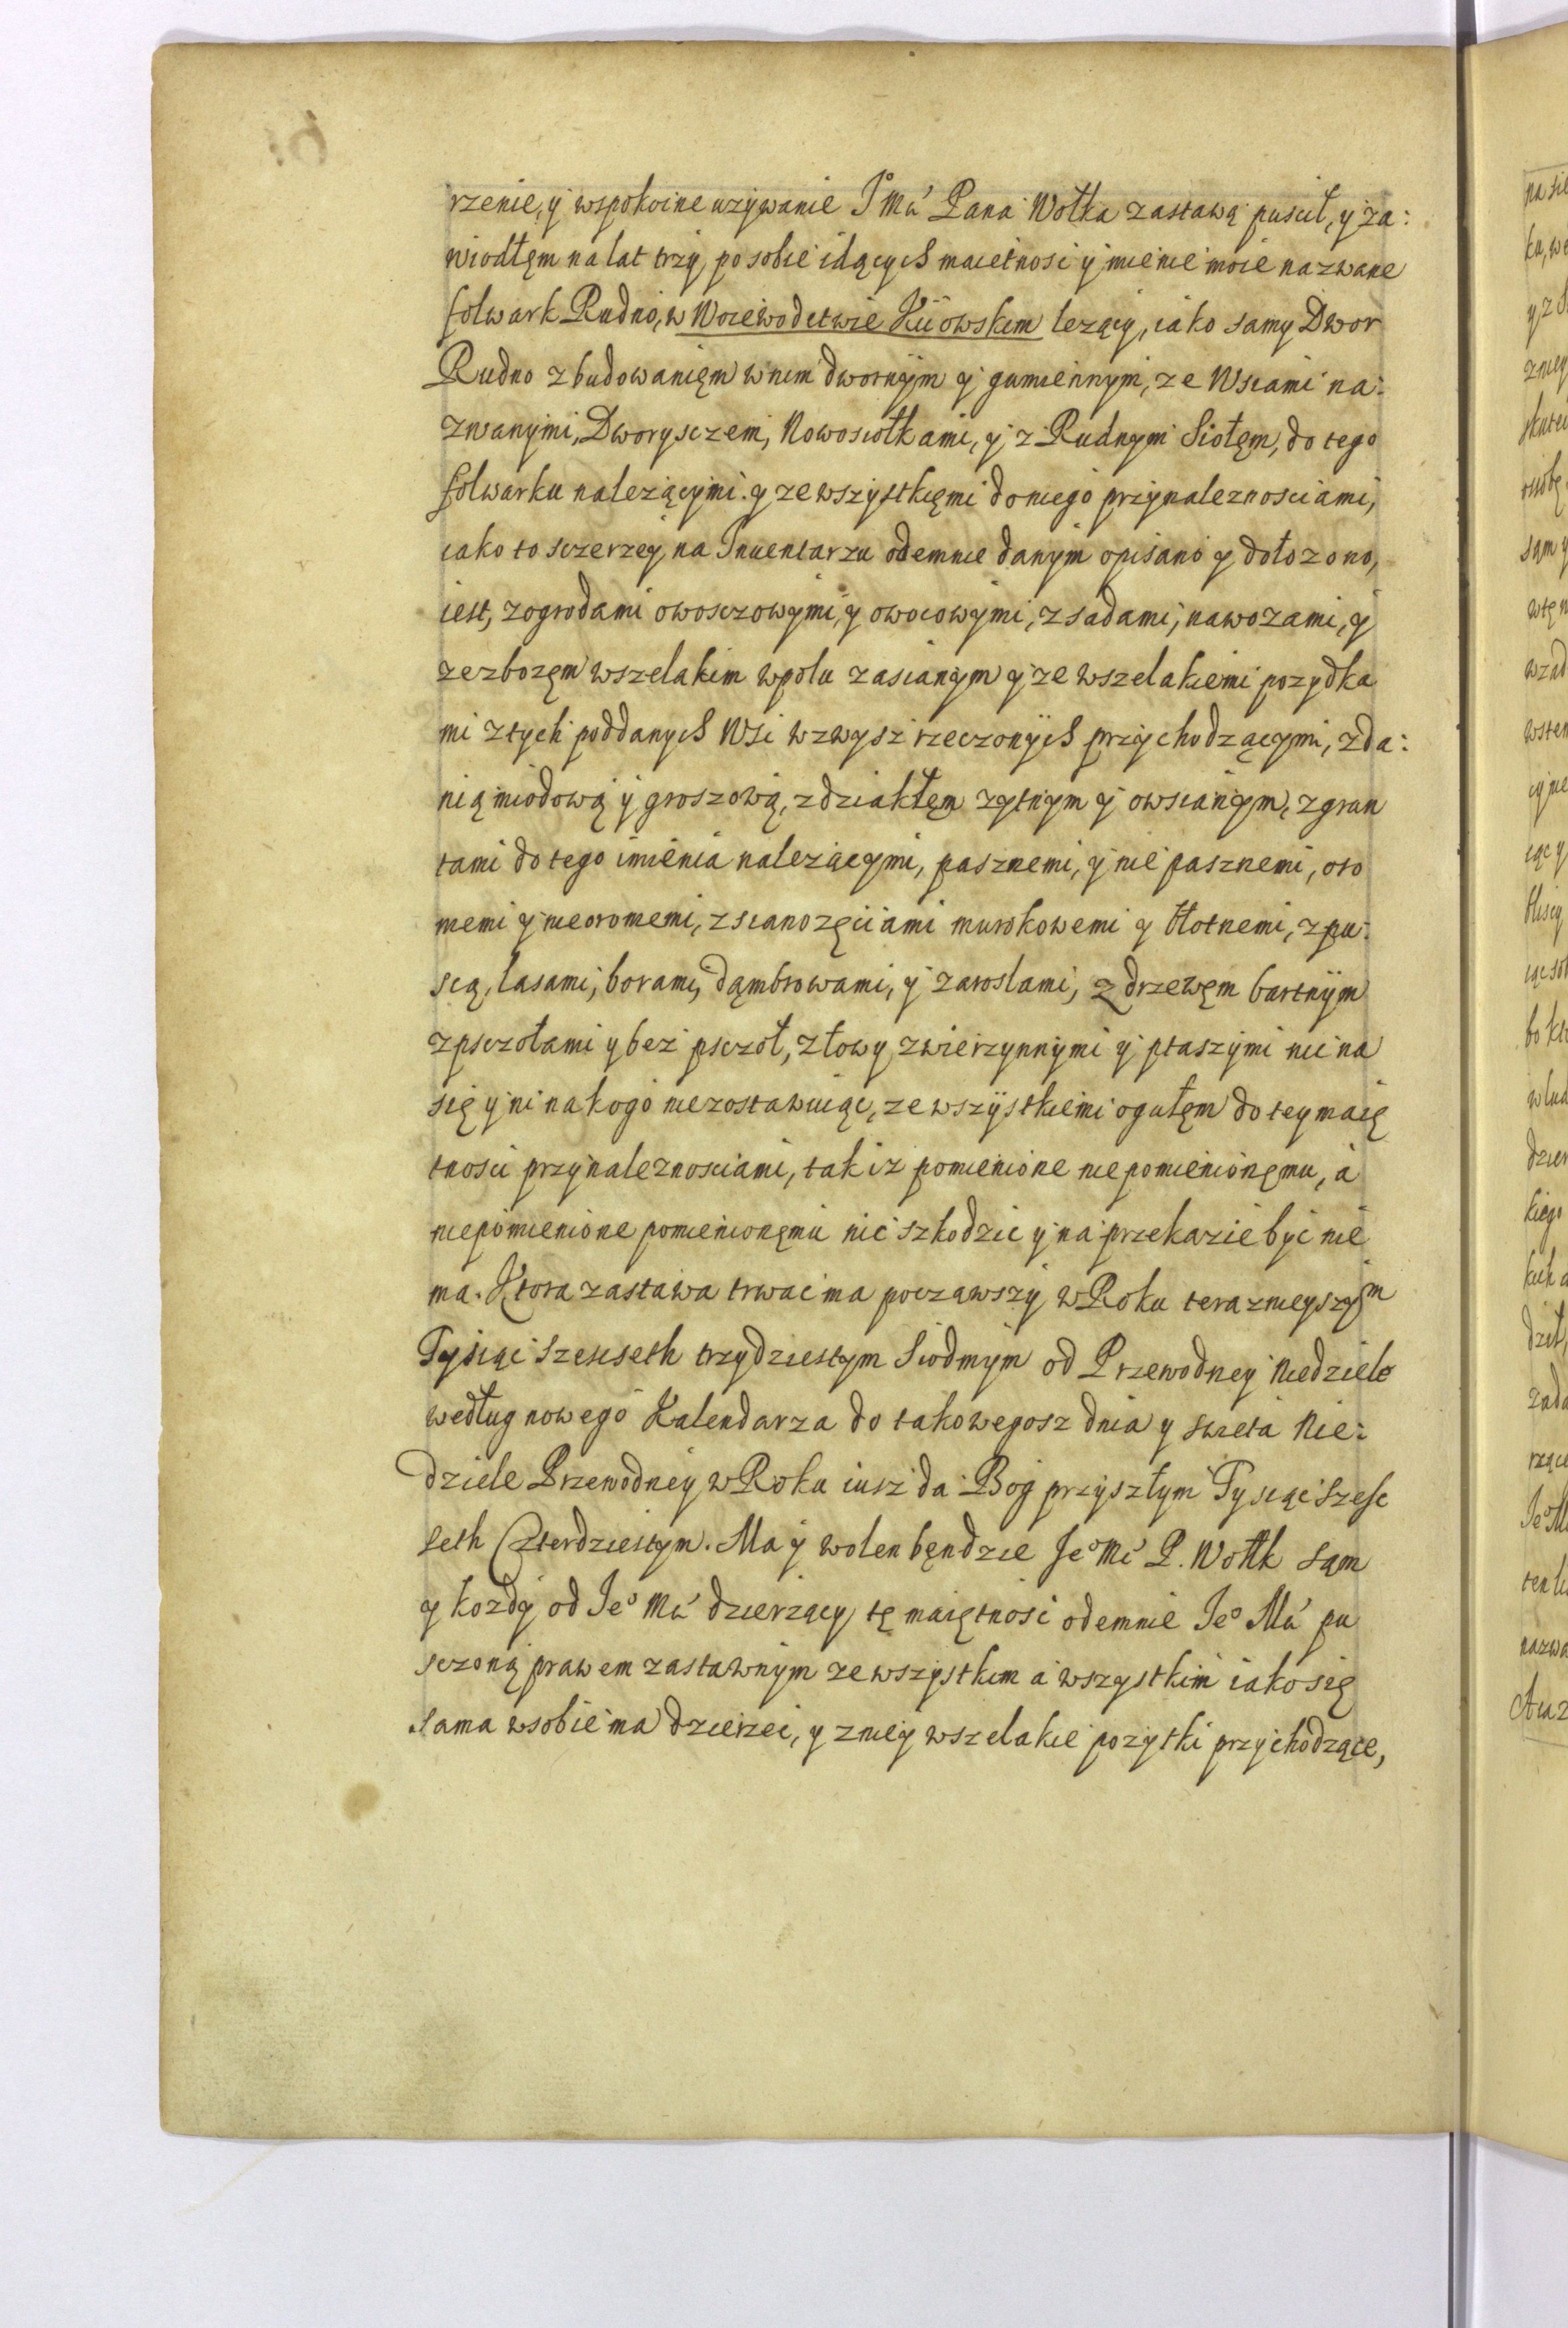 rzenie, y wspokoine uzywanie J° Mci Pana Wołka zastawą puscił, y za:
wiodłęm na lat trzy po sobie idących maietnosc y imienie moie nazwane
folwark Rudno, w Woiewodctwie Kiiowskim lezący, iako samy Dwor
Rudno z budowanięm w nim dwornym y gumiennym, ze Wsiami na:
zwanymi, Dworysczem, Nowosiołkami, y z Rudnym Siołęm, do tego
folwarku nalezącymi. y ze wszystkięmi do niego przynaleznosciami,
iako to sczerzey na Inuentarzu odemnie danym opisano y dołozono,
iest, z ogrodami owosczowymi, y owocowymi, z sadami, nawozami, y
ze zbozęm wszelakim w polu zasianym y ze wszelakiemi pozydka
mi z tych poddanych Wsi w zwysz rzeczonych przychodzącymi, z da:
nią miodową y groszową, z dziakłęm zytnym y owsianym, z grun
tami do tego imienia nalezącymi, pasznemi, y nie pasznemi, oro
memi y nieoromemi, z sianozęciami murokowemi y błotnemi, z pu:
scą, lasami, borami, dąmbrowami, y zaroslami, z drzewęm bartnym
z psczołami y bez psczoł, z łowy zwierzynnymi y ptaszymi nic na
się y ni na kogo nie zostawuiąc, ze wszystkiemi ogułęm do tey maię
tnosci przynaleznosciami, tak iz pomienione nie pomienionęmu, a
niepomienione pomienionęmu nic szkodzic y na przekazie byc nie
ma. Ktora zastawa trwac ma począwszy w Roku teraznieyszym
Tysiąc szescseth trzydziestym siodmym od Przewodney Niedziele
według nowego Kalendarza do takowegosz dnia y swieta Nie:
dziele Przewodney w Roku iusz da Bog przyszłym Tysiąc szesc
seth Czterdziestym. Ma y wolen będzie Je° Mc P. Wołk sąm
y kozdy od Je° Mci dzierzący tę maiętnosc odemnie Je° Mci pu
sczoną prawem zastawnym ze wszystkim a wszystkim iako się
sama w sobie ma dzierzec, y z niey wszelakie pozytki przychodzące,